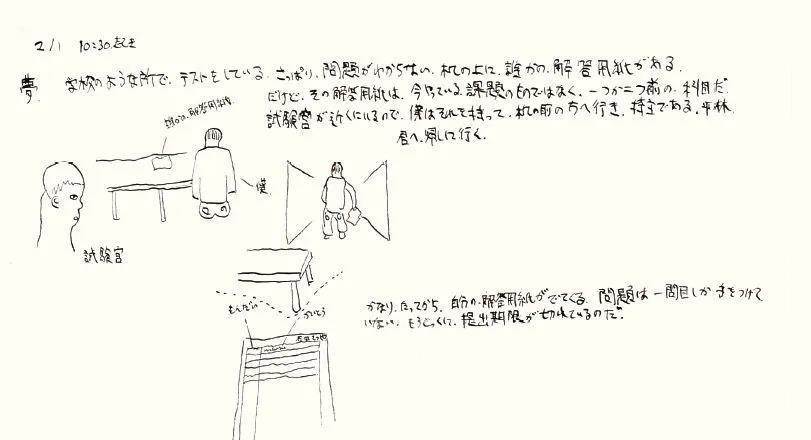 2/1 10:30 起き
夢 学校のような所で、テストをしている。さっぱり、問題がわからない。机の上に、誰かの、解答用紙がある。
だけど、その解答用紙は、今やっている課題のものではなく、一つか二つ前の、科目だ。
試験官が近くにいるので、僕はそれを持って、机の前の方へ行き、持主である、平林
君へ、帰しに行く。
誰かの、解答用紙
僕
試験官
かなり、たってから、自分の、解答用紙がでてくる。問題は一問目しか、手をつけて
いない。もうとっくに、提出期限が切れているのだ。
もんだい
かいとう